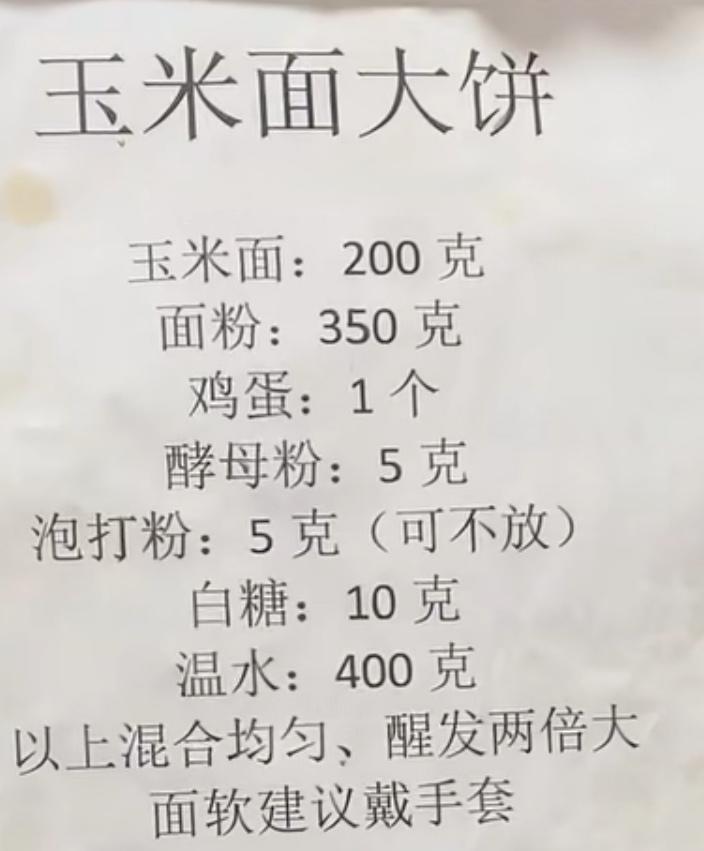 玉米面大饼
玉米面：200 克
面粉：350 克
鸡蛋：1 个
酵母粉：5 克
泡打粉：5 克（可不放）
白糖：10 克
温水：400 克
以上混合均匀、醒发两倍大
面软建议戴手套